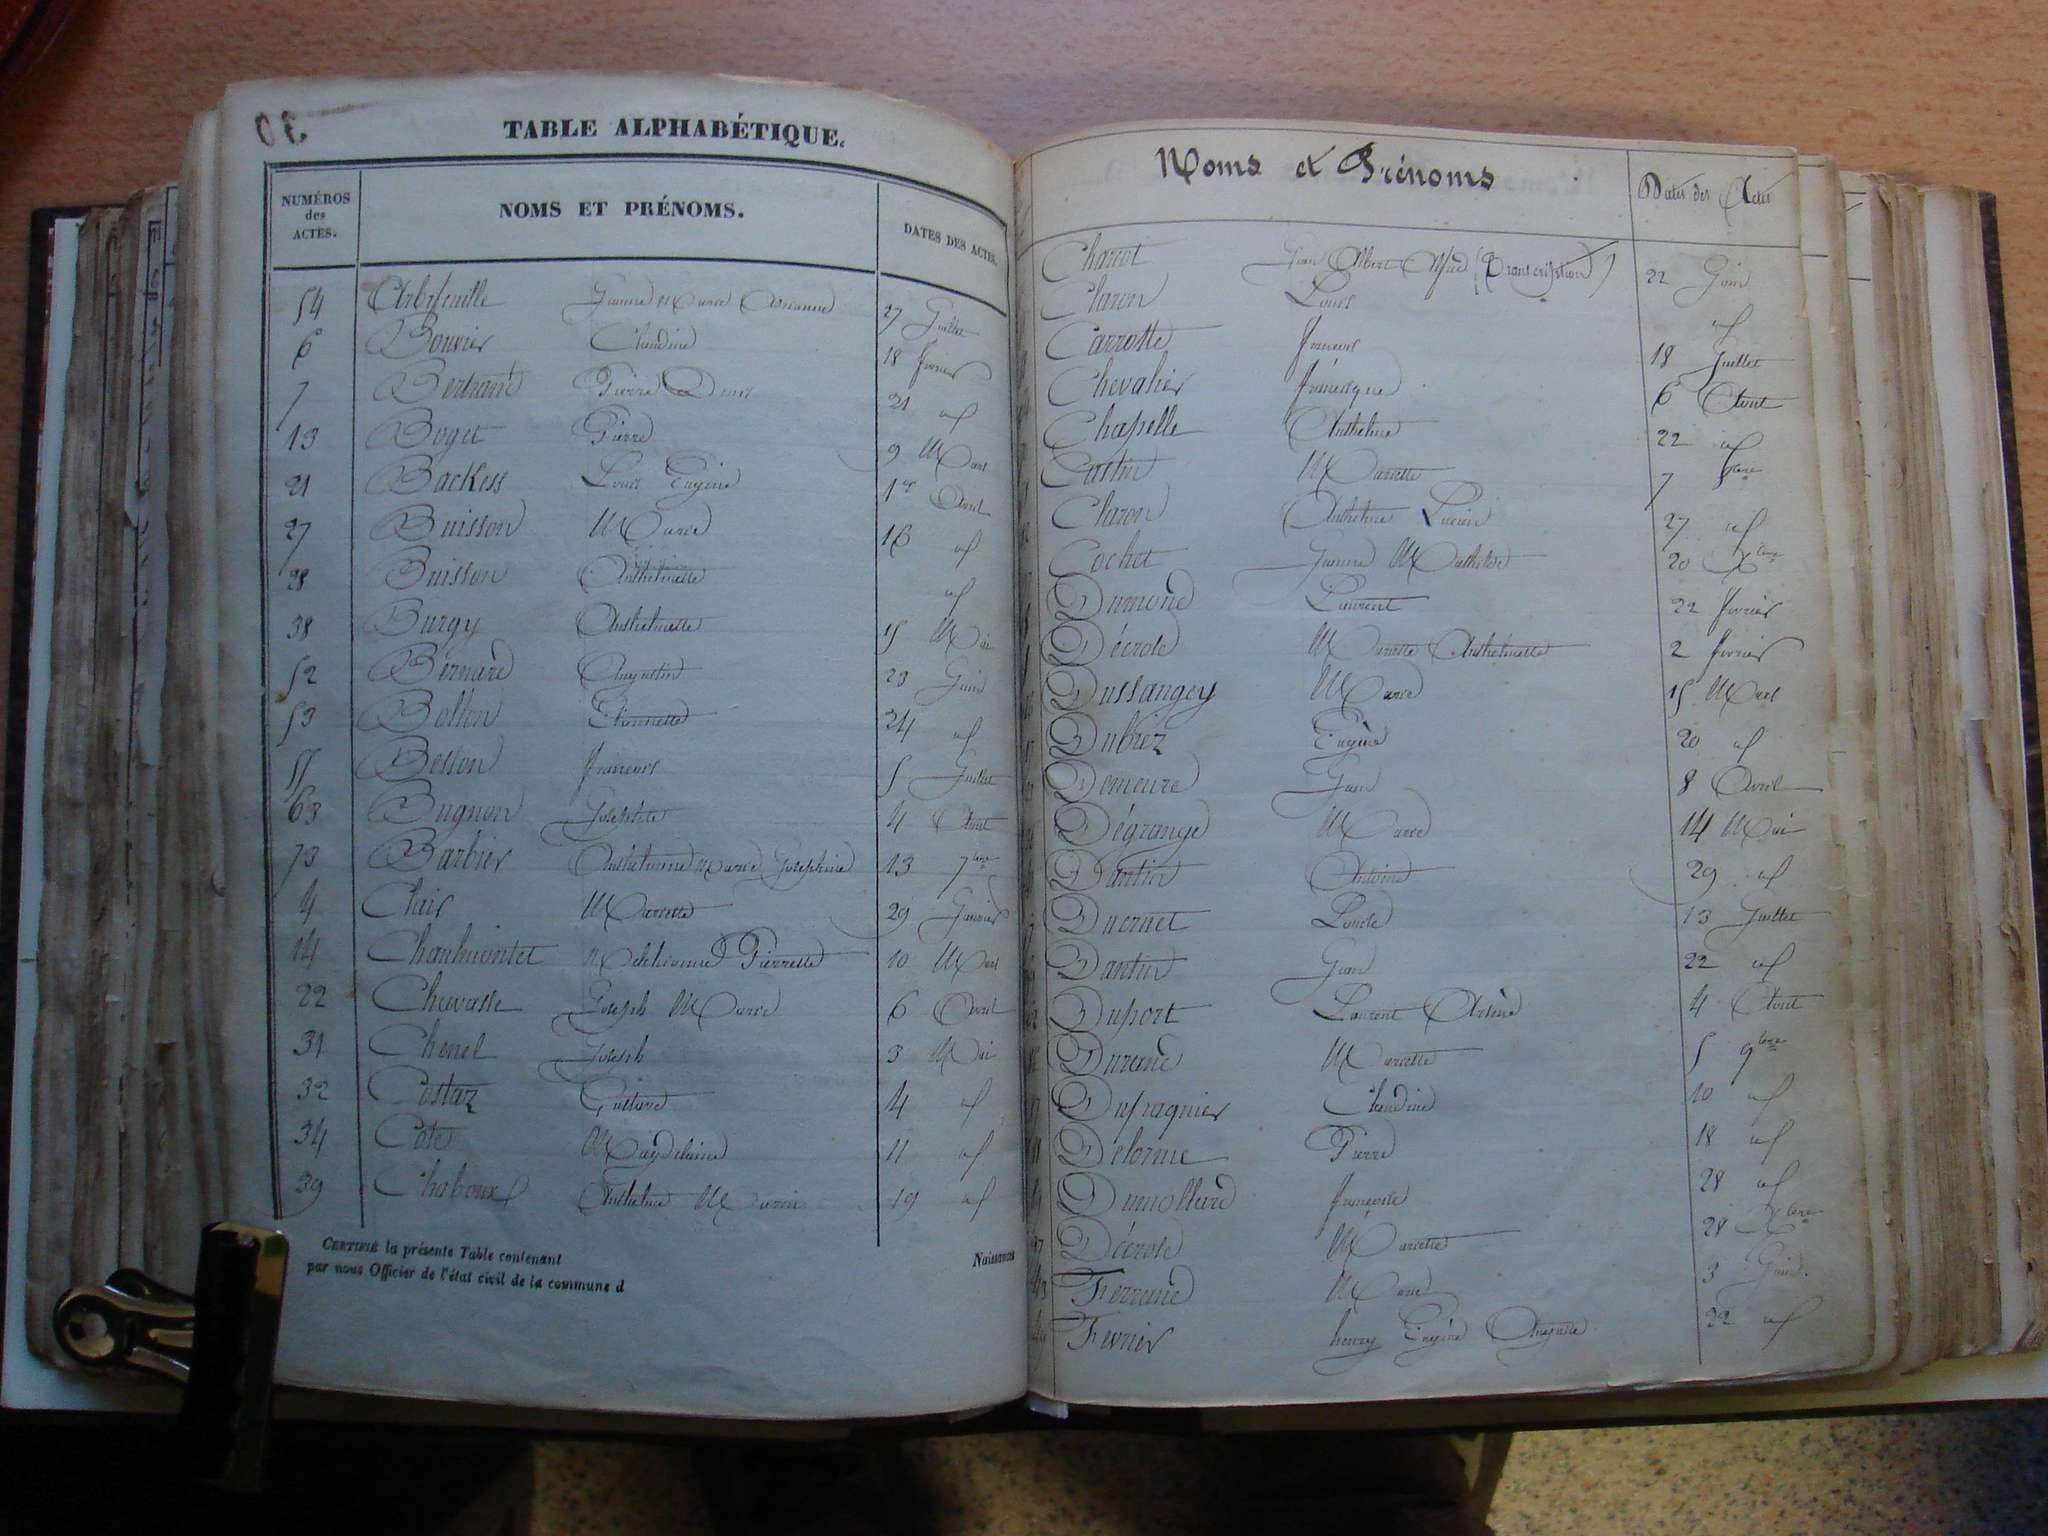 TABLE ALPHABÉTIQUE.
NUMÉROS des ACTES.
NOMS ET PRÉNOMS.
DATES DES ACTES.
54 Arbrfeuille Jeanne Marie 27 Juillet
6 Bouvier Claudine 18 février
7 Bertrand Pierre 21 id
13 Boget Pierre 9 Mars
21 Backess Louis Eugène 1er Avril
27 Buisson Marie 18 id
28 Buisson Anthelmette id
38 Burgy Anthelmette 15 Mai
52 Bernard Augustin 23 Juin
53 Bollon Etiennette 24 id
55 Besson françois 5 Juillet
63 Bugnon Josephte 4 Aout
73 Barbier Anthelmine Marie Josephine 13 7bre
4 Clair Mariette 29 Janvier
14 Chaulmontet Melchionne Pierrette 10 Mars
22 Chevasse Joseph Marie 6 Avril
31 Chenel Joseph 3 Mai
32 Costaz Gustave 4 id
34 Cote Magdelaine 11 id
39 Chaboux Anthelme Marin 19 id
CERTIFIÉ la présente Table contenant
par nous Officier de l'état civil de la commune d
Naissances
Noms et Prénoms
Dates des Actes
Charcot Jean Albert Alfred (Transcription) 22 Juin
Claron Louis id
Carrotte francois 18 Juillet
Chevalier 6 Aout
Chapelle Anthelme 22 id
Catin Mariette 7
Claron Anthelme Lucien 27 id
Cochet Jeanne Mathilde 20 Xbre
Dumond Laurent 22 février
Décrole Mariette Anthelmette 2 fevrier
Dussangey Marie 15 Mars
Dubiez Eugène 20 id
Demeure Jean 8 Avril
Dégrange Marie 14 Mai
Dantin Antoine 29 id
Ducrnet Louise 13 Juillet
Dantin Jean 22 id
Duport Laurent Arsène 4 Aout
Durand Mariette 5 9bre
Dufraquier Claudine 10 id
Delorme Pierre 18 id
Dumollard françoise 28 id
Décrole Mariette 28 Xbre
43 Ferrand Marie 3 Juin.
Fevrier henry Eugène Auguste 22 id